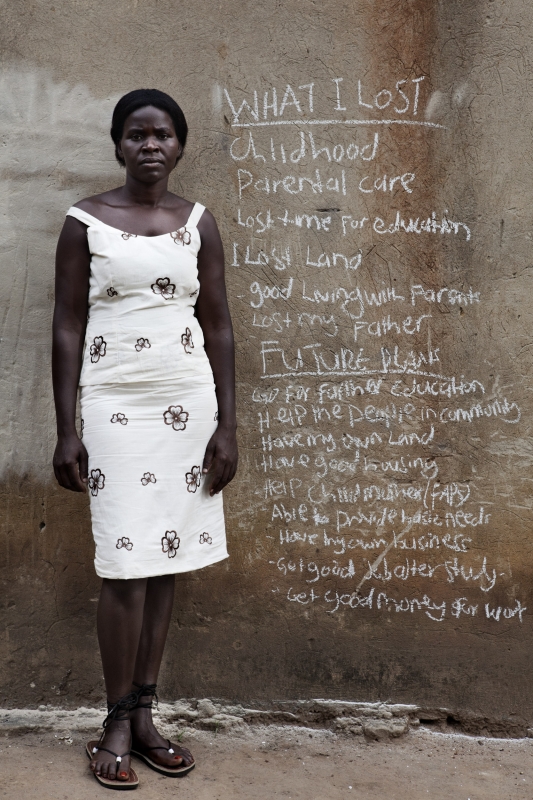 WHAT I LOST
Childhood
Parental care
Lost time for education
I Lost Land
- good Living with Parents
Lost my Father
FUTURE PLANS
Go for further education
Help the people in community
Have my own Land
Have good housing
Help Child mother (FAPS)
- Able to provide basic needs
- Have my own business
- Get good Job after study -
- Get good money for work